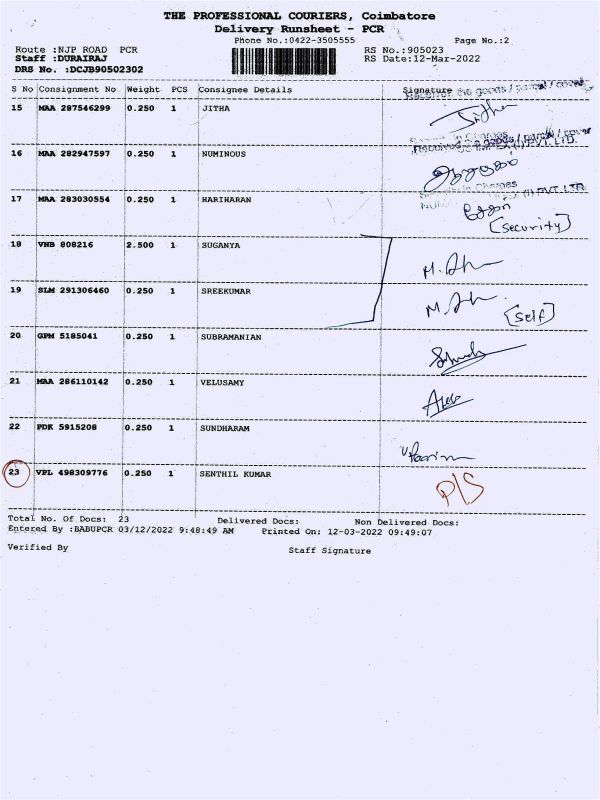 THE PROFESSIONAL COURIERS, Coimbatore
Delivery Runsheet - PCR
Phone No.:0422-3505555 Page No.:2
Route :NJP ROAD PCR RS No.:905023
Staff :DURAIRAJ RS Date:12-Mar-2022
DRS No. :DCJB90502302
S No Consignment No Weight PCS Consignee Details Signature
the goods / parcel / cover
15 MAA 287546299 0.250 1 JITHA Jitha
goods / parcel / cover
PVT. LTD.
16 MAA 282947597 0.250 1 NUMINOUS
(I) PVT LTD
17 MAA 283030554 0.250 1 HARIHARAN
[Security]
18 VHB 808216 2.500 1 SUGANYA
19 SLM 291306460 0.250 1 SREEKUMAR
[Self]
20 GPM 5185041 0.250 1 SUBRAMANIAN
21 MAA 286110142 0.250 1 VELUSAMY
22 PDK 5915208 0.250 1 SUNDHARAM
23 VPL 498309776 0.250 1 SENTHIL KUMAR P/S
Total No. Of Docs: 23 Delivered Docs: Non Delivered Docs:
Entered By :BABUPCR 03/12/2022 9:48:49 AM Printed On: 12-03-2022 09:49:07
Verified By Staff Signature